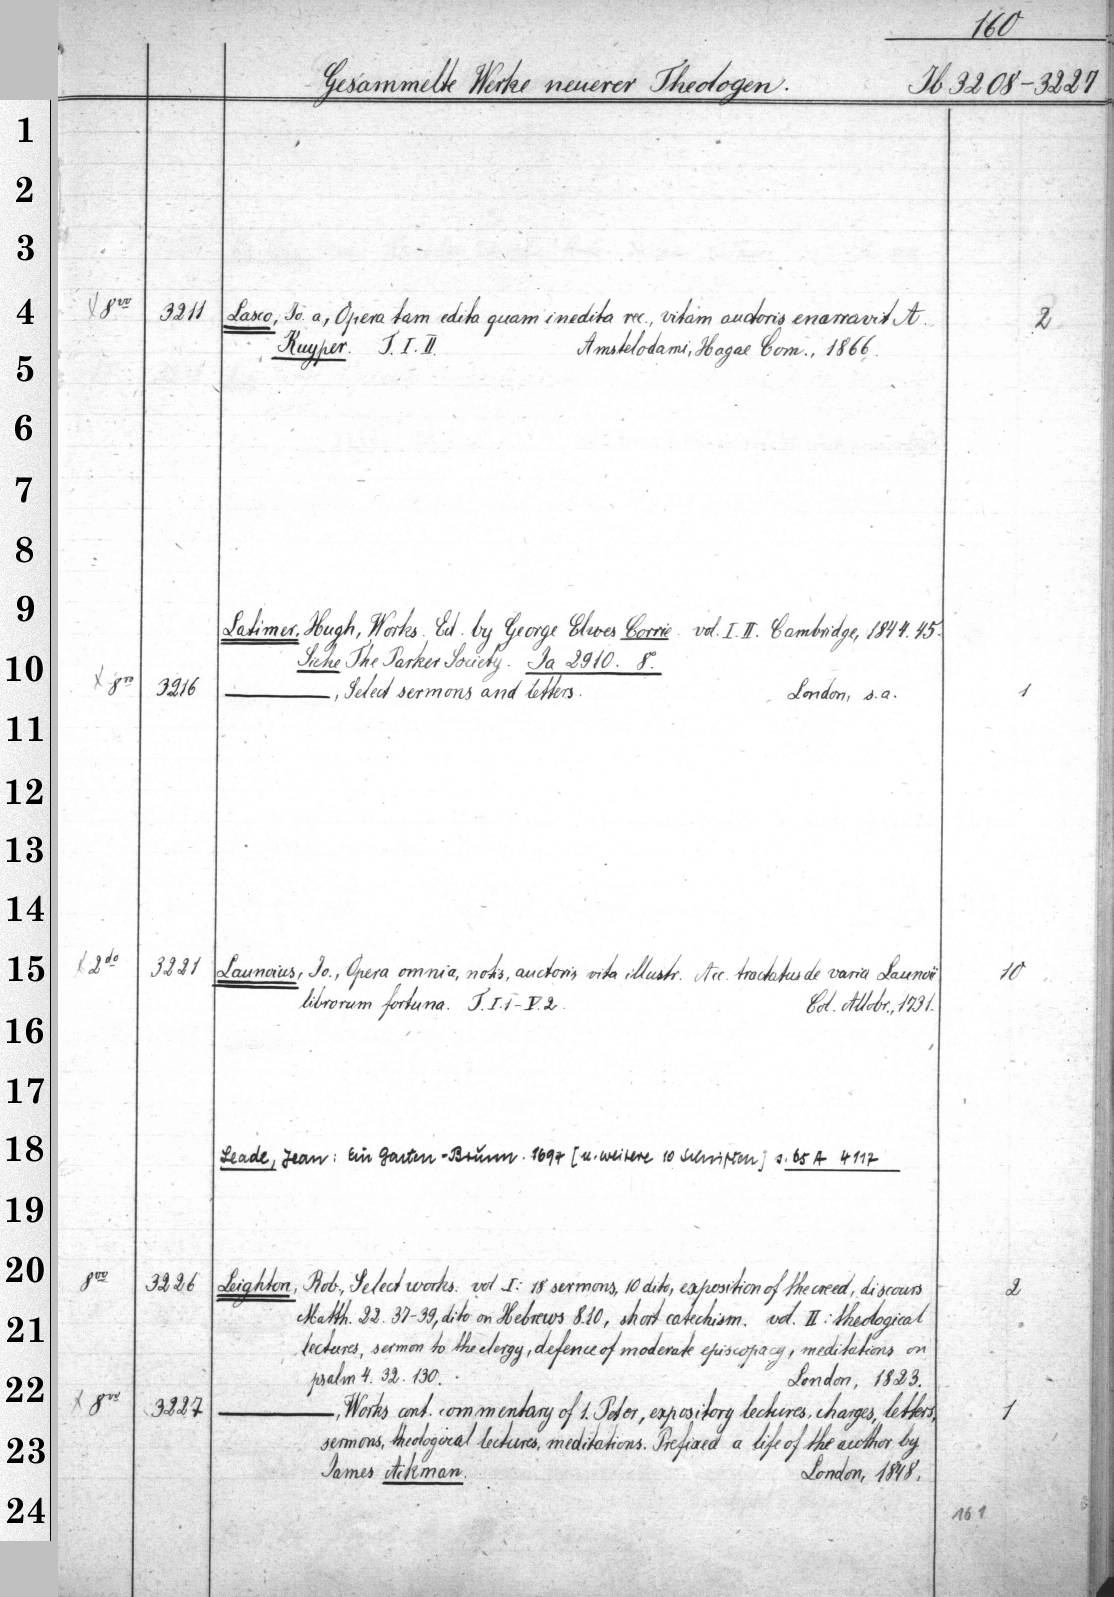 160
Gesammelte Werke neuerer Theologen. Ib 3208-3227
1
2
3
4
x 8vo 3211 Lasco, Jo. a, Opera tam edita quam inedita rec., vitam auctoris enarravit A. 2
Kuyper. T. I. II. Amstelodami, Hagae Com., 1866.
5
6
7
8
9
Latimer, Hugh, Works. Ed. by George Elwes Corrie. vol. I. II. Cambridge, 1844.45.
Siehe The Parker Society. Ia 2910. 8°.
10
x 8vo 3216 ———, Select sermons and letters. London, s.a. 1
11
12
13
14
15
x 2do 3221 Launoius, Jo., Opera omnia, notis, auctoris vita illustr. Acc. tractatus de varia Launoii 10
librorum fortuna. T. I.1-V.2. Col. Allobr., 1731.
16
17
18
Leade, Jean: Ein Garten-Brunn. 1697 [u. weitere 10 Schriften] s. 65 A 4117
19
20
8vo 3226 Leighton, Rob., Select works. vol I: 18 sermons, 10 dito, exposition of the creed, discours 2
Matth. 22. 37-39, dito on Hebrews 8.10, short catechism. vol. II: theological
21
lectures, sermon to the clergy, defence of moderate episcopacy, meditations on
psalm 4. 32. 130. London, 1823.
22
x 8vo 3227 ———, Works cont. commentary of 1. Peter, expository lectures, charges, letters, 1
sermons, theological lectures, meditations. Prefixed a life of the author by
23
James Aikman. London, 1848.
24
161